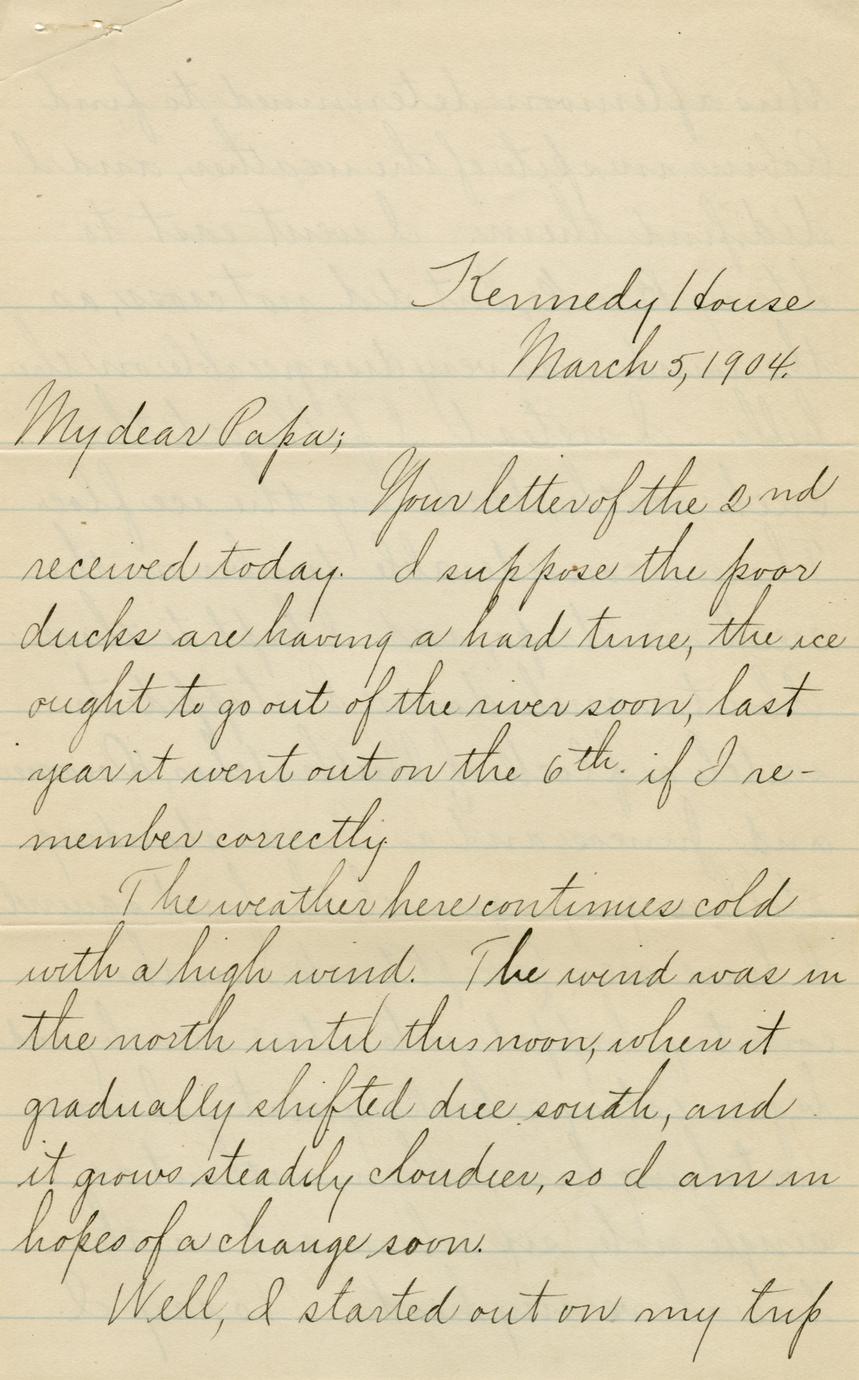 Kennedy House
March 5, 1904.
My dear Papa;
Your letter of the 2nd
received today. I suppose the poor
ducks are having a hard time, the ice
ought to go out of the river soon, last
year it went out on the 6th. if I re-
member correctly.
The weather here continues cold
with a high wind. The wind was in
the north until this noon, when it
gradually shifted due south, and
it grows steadily cloudier, so I am in
hopes of a change soon.
Well, I started out on my trip